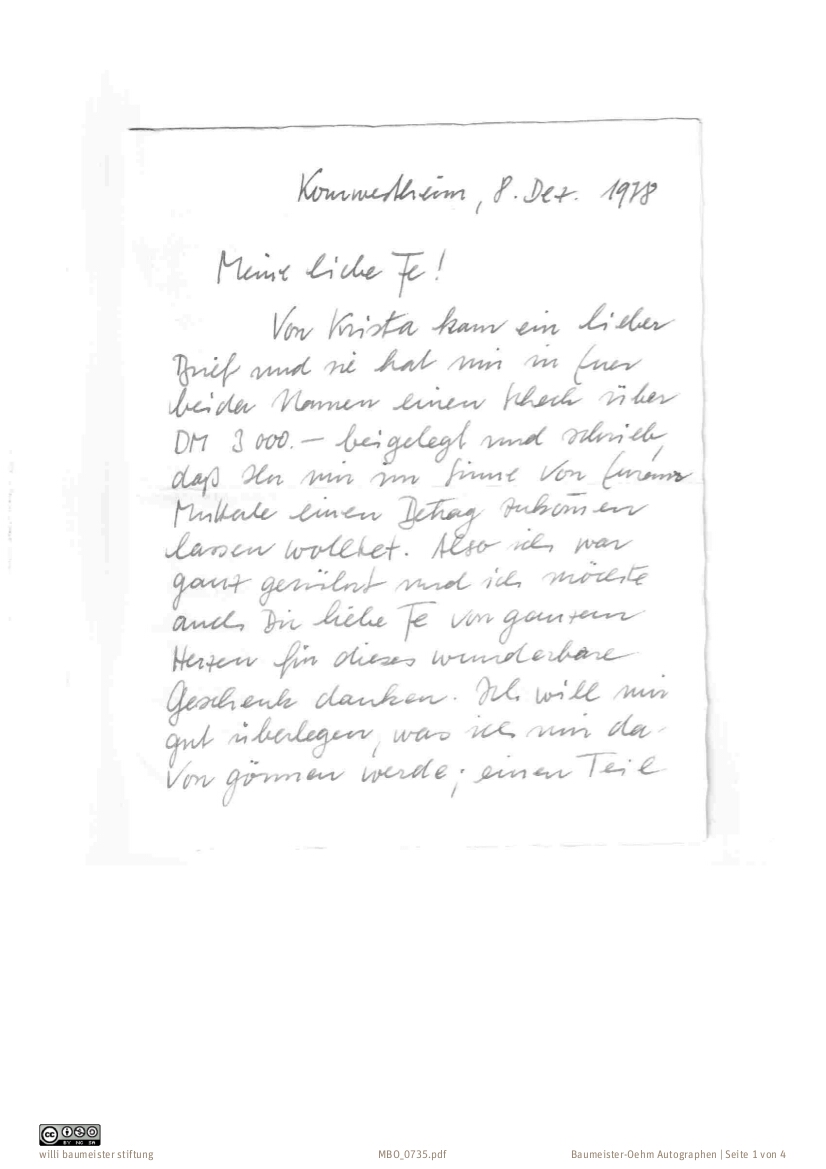 Kornwestheim, 8. Dez. 1978
Meine liebe Fe!
Von Krista kam ein lieber
Brief und sie hat mir in Euer
beider Namen einen Scheck über
DM 3 000.— beigelegt und schrieb,
daß Ihr mir im Sinne von Eurem
Mutterle einen Betrag zukom̄en
lassen wolltet. Also ich war
ganz gerührt und ich möchte
auch Dir liebe Fe von ganzem
Herzen für dieses wunderbare
Geschenk danken. Ich will mir
gut überlegen, was ich mir da-
von gönnen werde; einen Teil
CC BY NC SA
willi baumeister stiftung
MBO_0735.pdf
Baumeister-Oehm Autographen | Seite 1 von 4